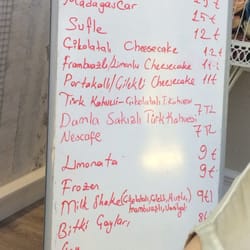 Madagascar
Sufle 15 ₺
Çikolatalı Cheesecake 12 ₺
Frambuazlı/Limonlu Cheesecake 11 ₺
Portakallı/Çilekli Cheesecake 11 ₺
Türk Kahvesi-Çikolatalı T.Kahvesi
Damla Sakızlı Türk Kahvesi 7 TL
Nescafe 7 TL
Limonata 9 ₺
Frozen 9 ₺
Milk Shake (Çikolatalı, Çilekli, Muzlu, Frambuazlı, Vanilyalı) 9 ₺
Bitki Çayları 8